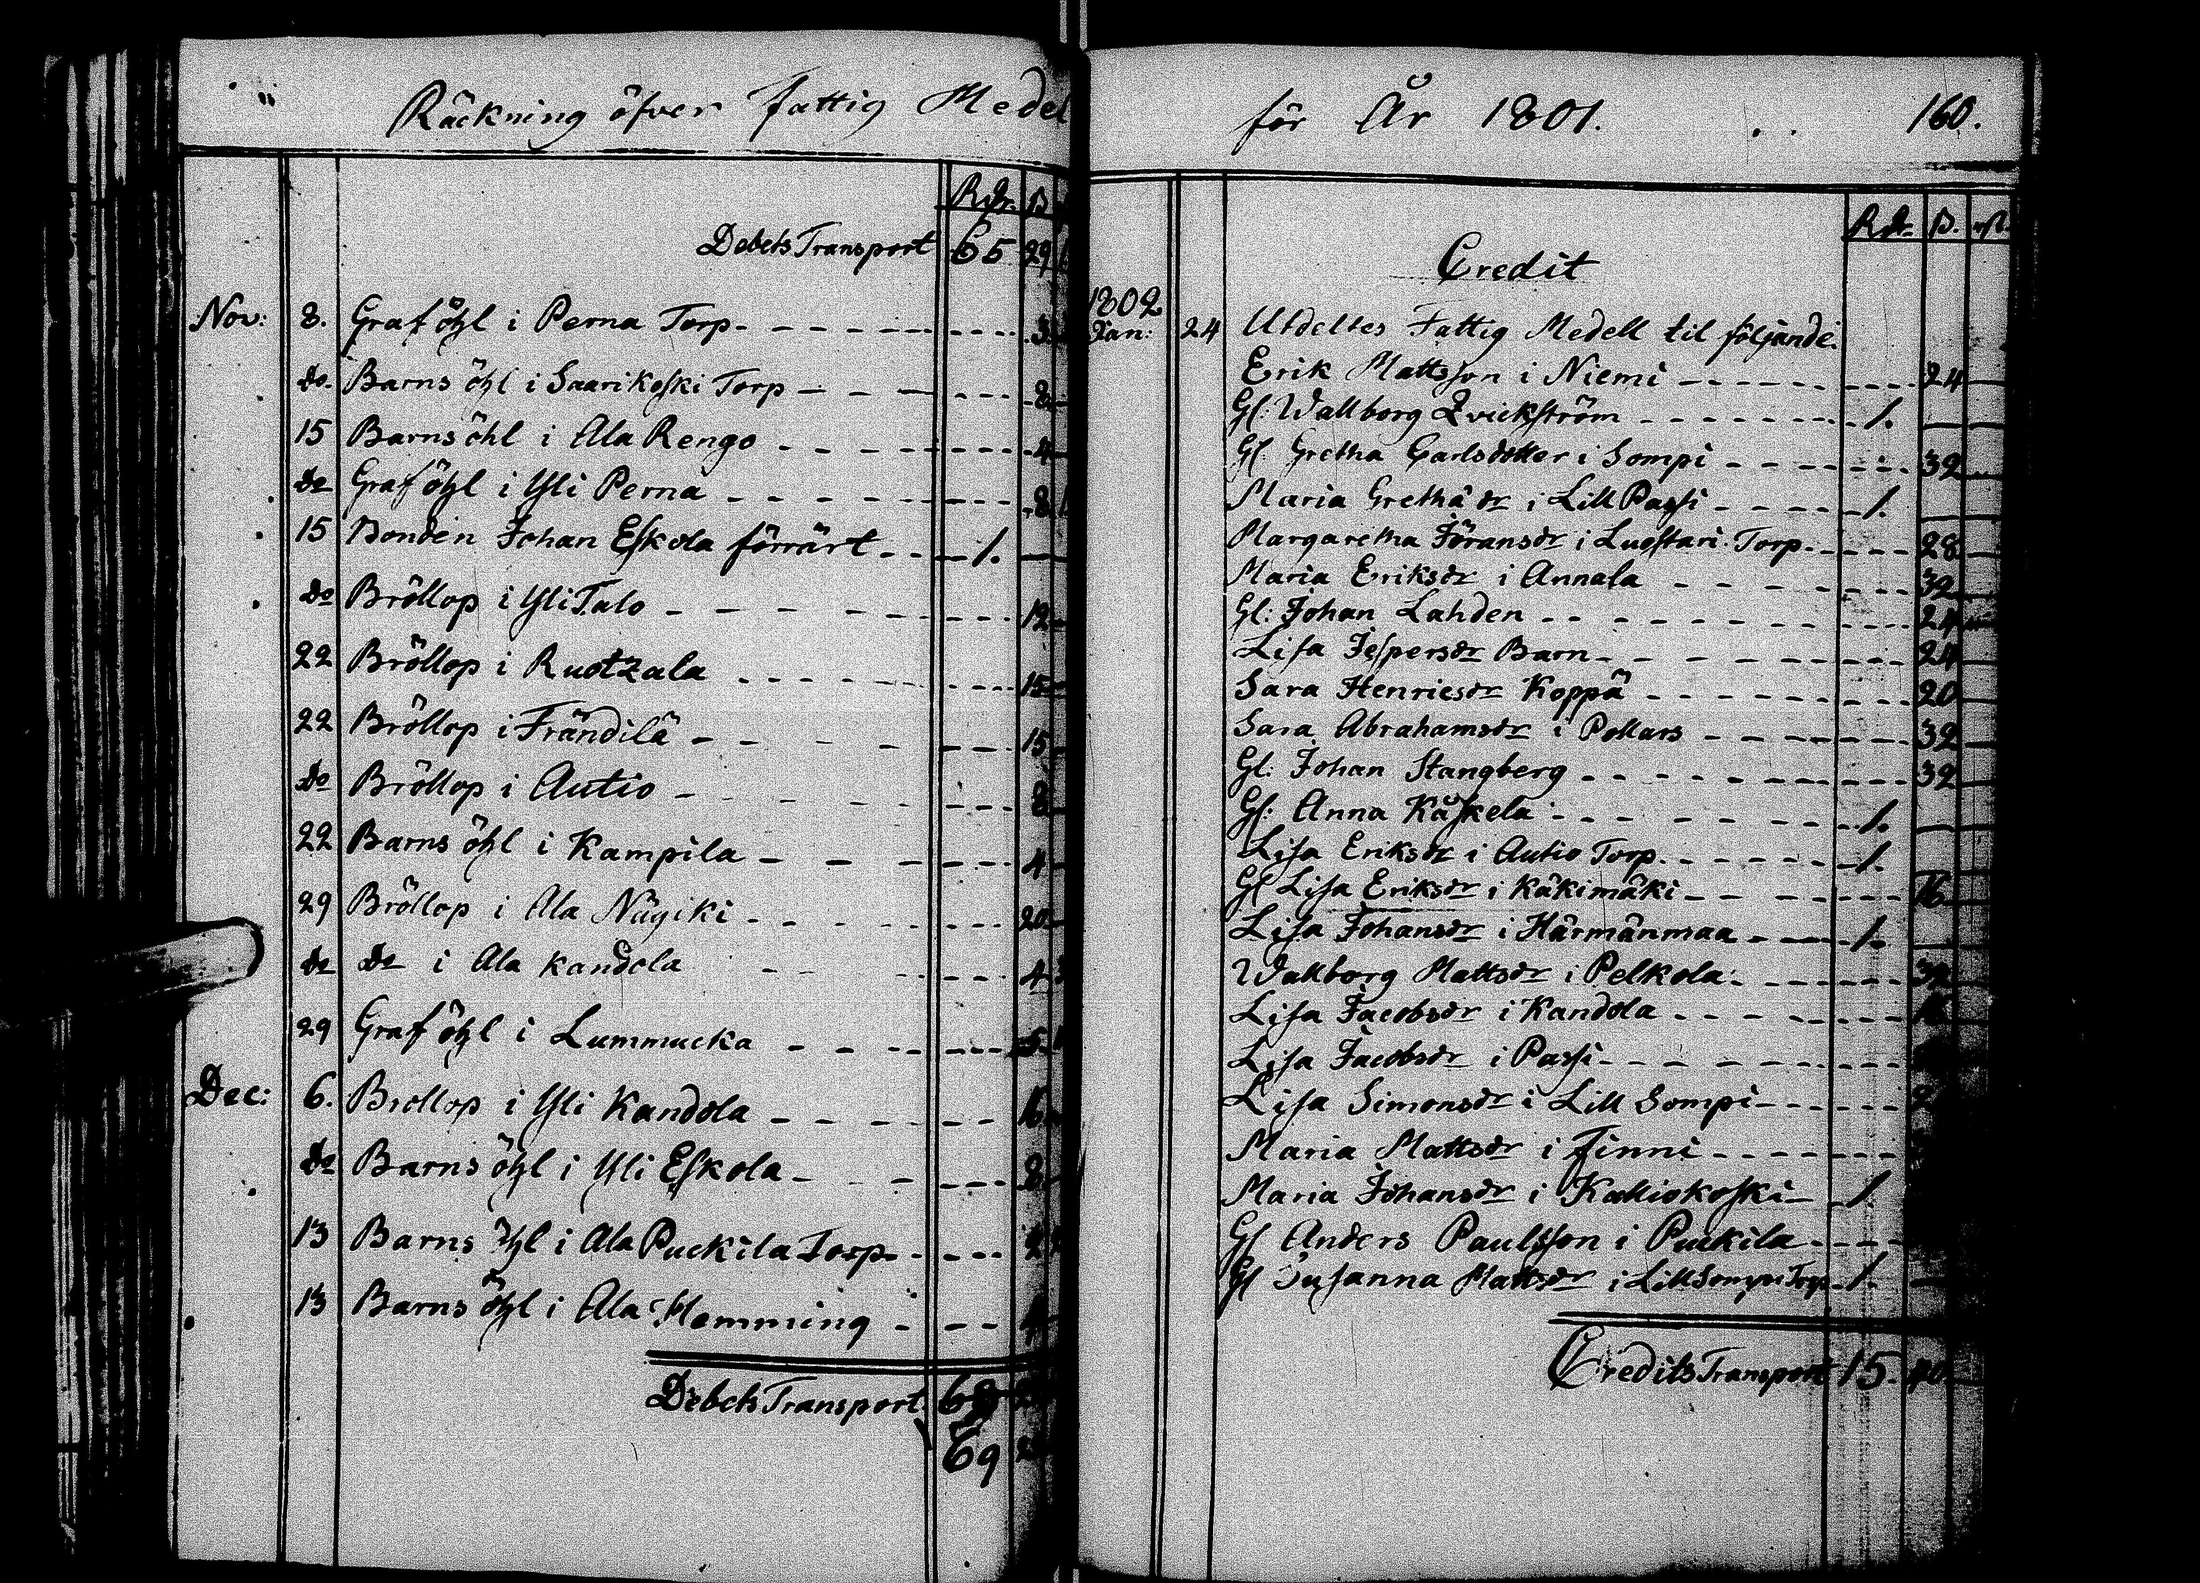 Räckning öfver Fattig Medel
Rdr. ß
Debets Transport 65 29
Nov: 8. Graf öhl i Perna Torp 3
do. Barns öhl i Saarikoski Torp 8
15 Barns öhl i Ala Rengo 4
do Graf öhl i Yli Perna 8
15 Bonden Johan Eskola förrärt 1.
do Bröllop i Yli Talo 12
22 Bröllop i Ruotzala 15
22 Bröllop i Frändilä 15
do Bröllop i Autio 8
22 Barns öhl i Kampila 4
29 Bröllop i Ala Nägiki 20
do do i Ala Kandola 4
29 Graf öhl i Lummucka 5
Dec: 6. Bröllop i Yli Kandola 16
do Barns öhl i Yli Eskola 8
13 Barns öhl i Ala Puckila Torp
13 Barns öhl i Ala Hemming 4
Debets Transport 68
69
för År 1801. 160.
Rdr. ß. rst.
Credit
1802
Jan: 24 Utdeltes Fattig Medell til följande.
Erik Mattsson i Niemi 24
Gl: Wallborg Qvickström 1.
Gl: Gretha Carlsdotter i Sompi 32
Maria Grethä dr i Lill Passi 1.
Margaretha Jöransdr i Luostari Torp 28
Maria Eriksdr i Annala 32
Gl: Johan Lahden 24
Lisa Jespersdr Barn 24
Sara Henricsdr Koppä 20
Sara Abrahamsdr i Pollars 32
Gl: Johan Stangberg 32
Gl: Anna Käskelä 1.
Lisa Eriksdr i Autio Torp 1.
Gl Lisa Eriksdr i Käkimäki 16
Lisa Johansdr i Härmänmaa 1.
Wallborg Mattsdr i Pelkola 32
Lisa Jacobsdr i Kandola 16
Lisa Jacobsdr i Passi
Lisa Simonsdr i Lill Sompi
Maria Mattsdr i Finni
Maria Johansdr i Kalliokoski 1.
Gl Anders Paulsson i Puckila
Gl Susanna Mattsdr i Lill Sompi Torp 1.
Credits Transport 15. 40.